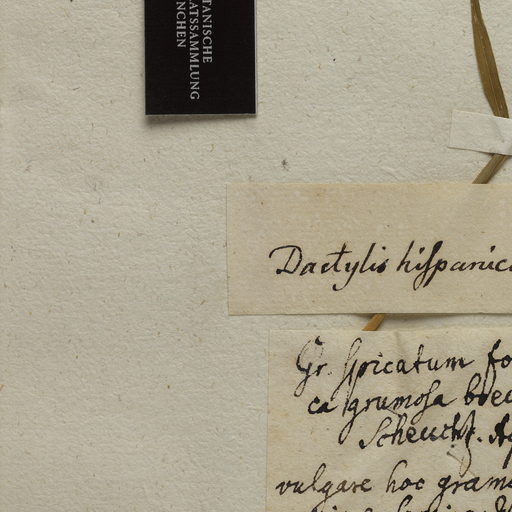 TANISCHE
ATSSAMMLUNG
NCHEN
Dactylis hispanic
Gr. spicatum fo
ca grumosa brev
Scheuchz. Ag
vulgare hoc gram